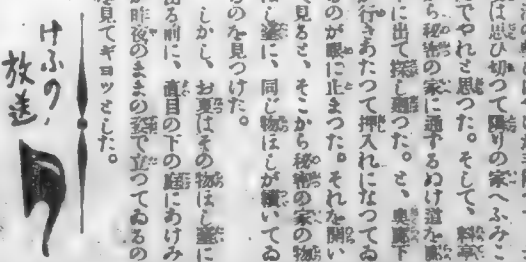 は思ひ切つて隣りの家へふみこ
でやれと思つた。そして、料亭
ら秘密の家に通ずるぬけ道を
に出て探し廻つた。と、奥廊下
が行きあたつて押入れになつてゐ
るのが眼に止まつた。それを開い
て見ると、そこから秘密の家の物
ほし臺に、同じ物ほしが續いてゐ
るのを見つけた。
しかし、お夏はその物ほし臺に
出る前に、眞目の下の庭にあけみ
が昨夜のままの姿で立つてゐるの
を見てギヨツとした。
けふの、
放送